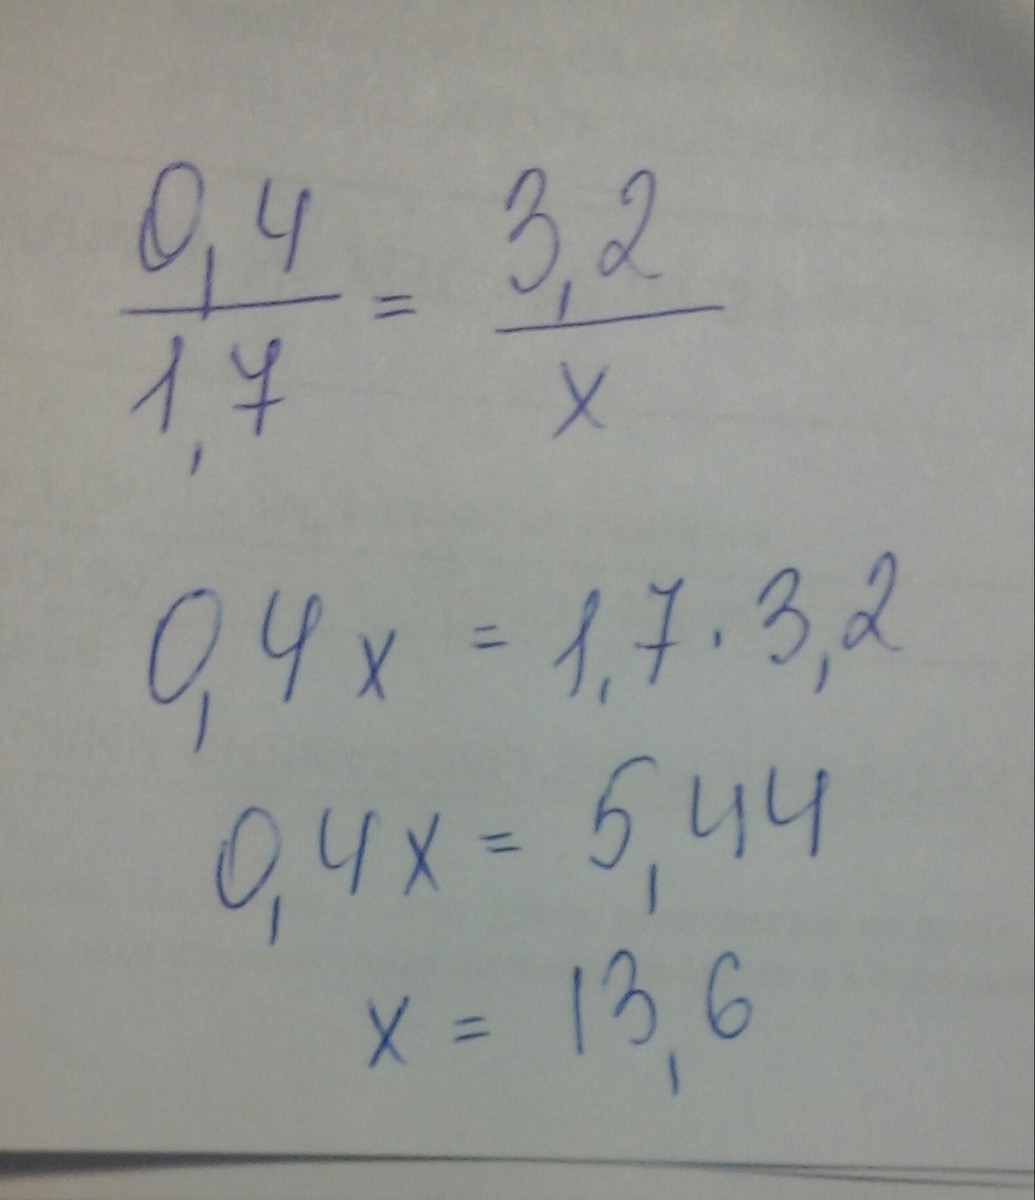 0,4/1,7 = 3,2/x
0,4x = 1,7 · 3,2
0,4x = 5,44
x = 13,6